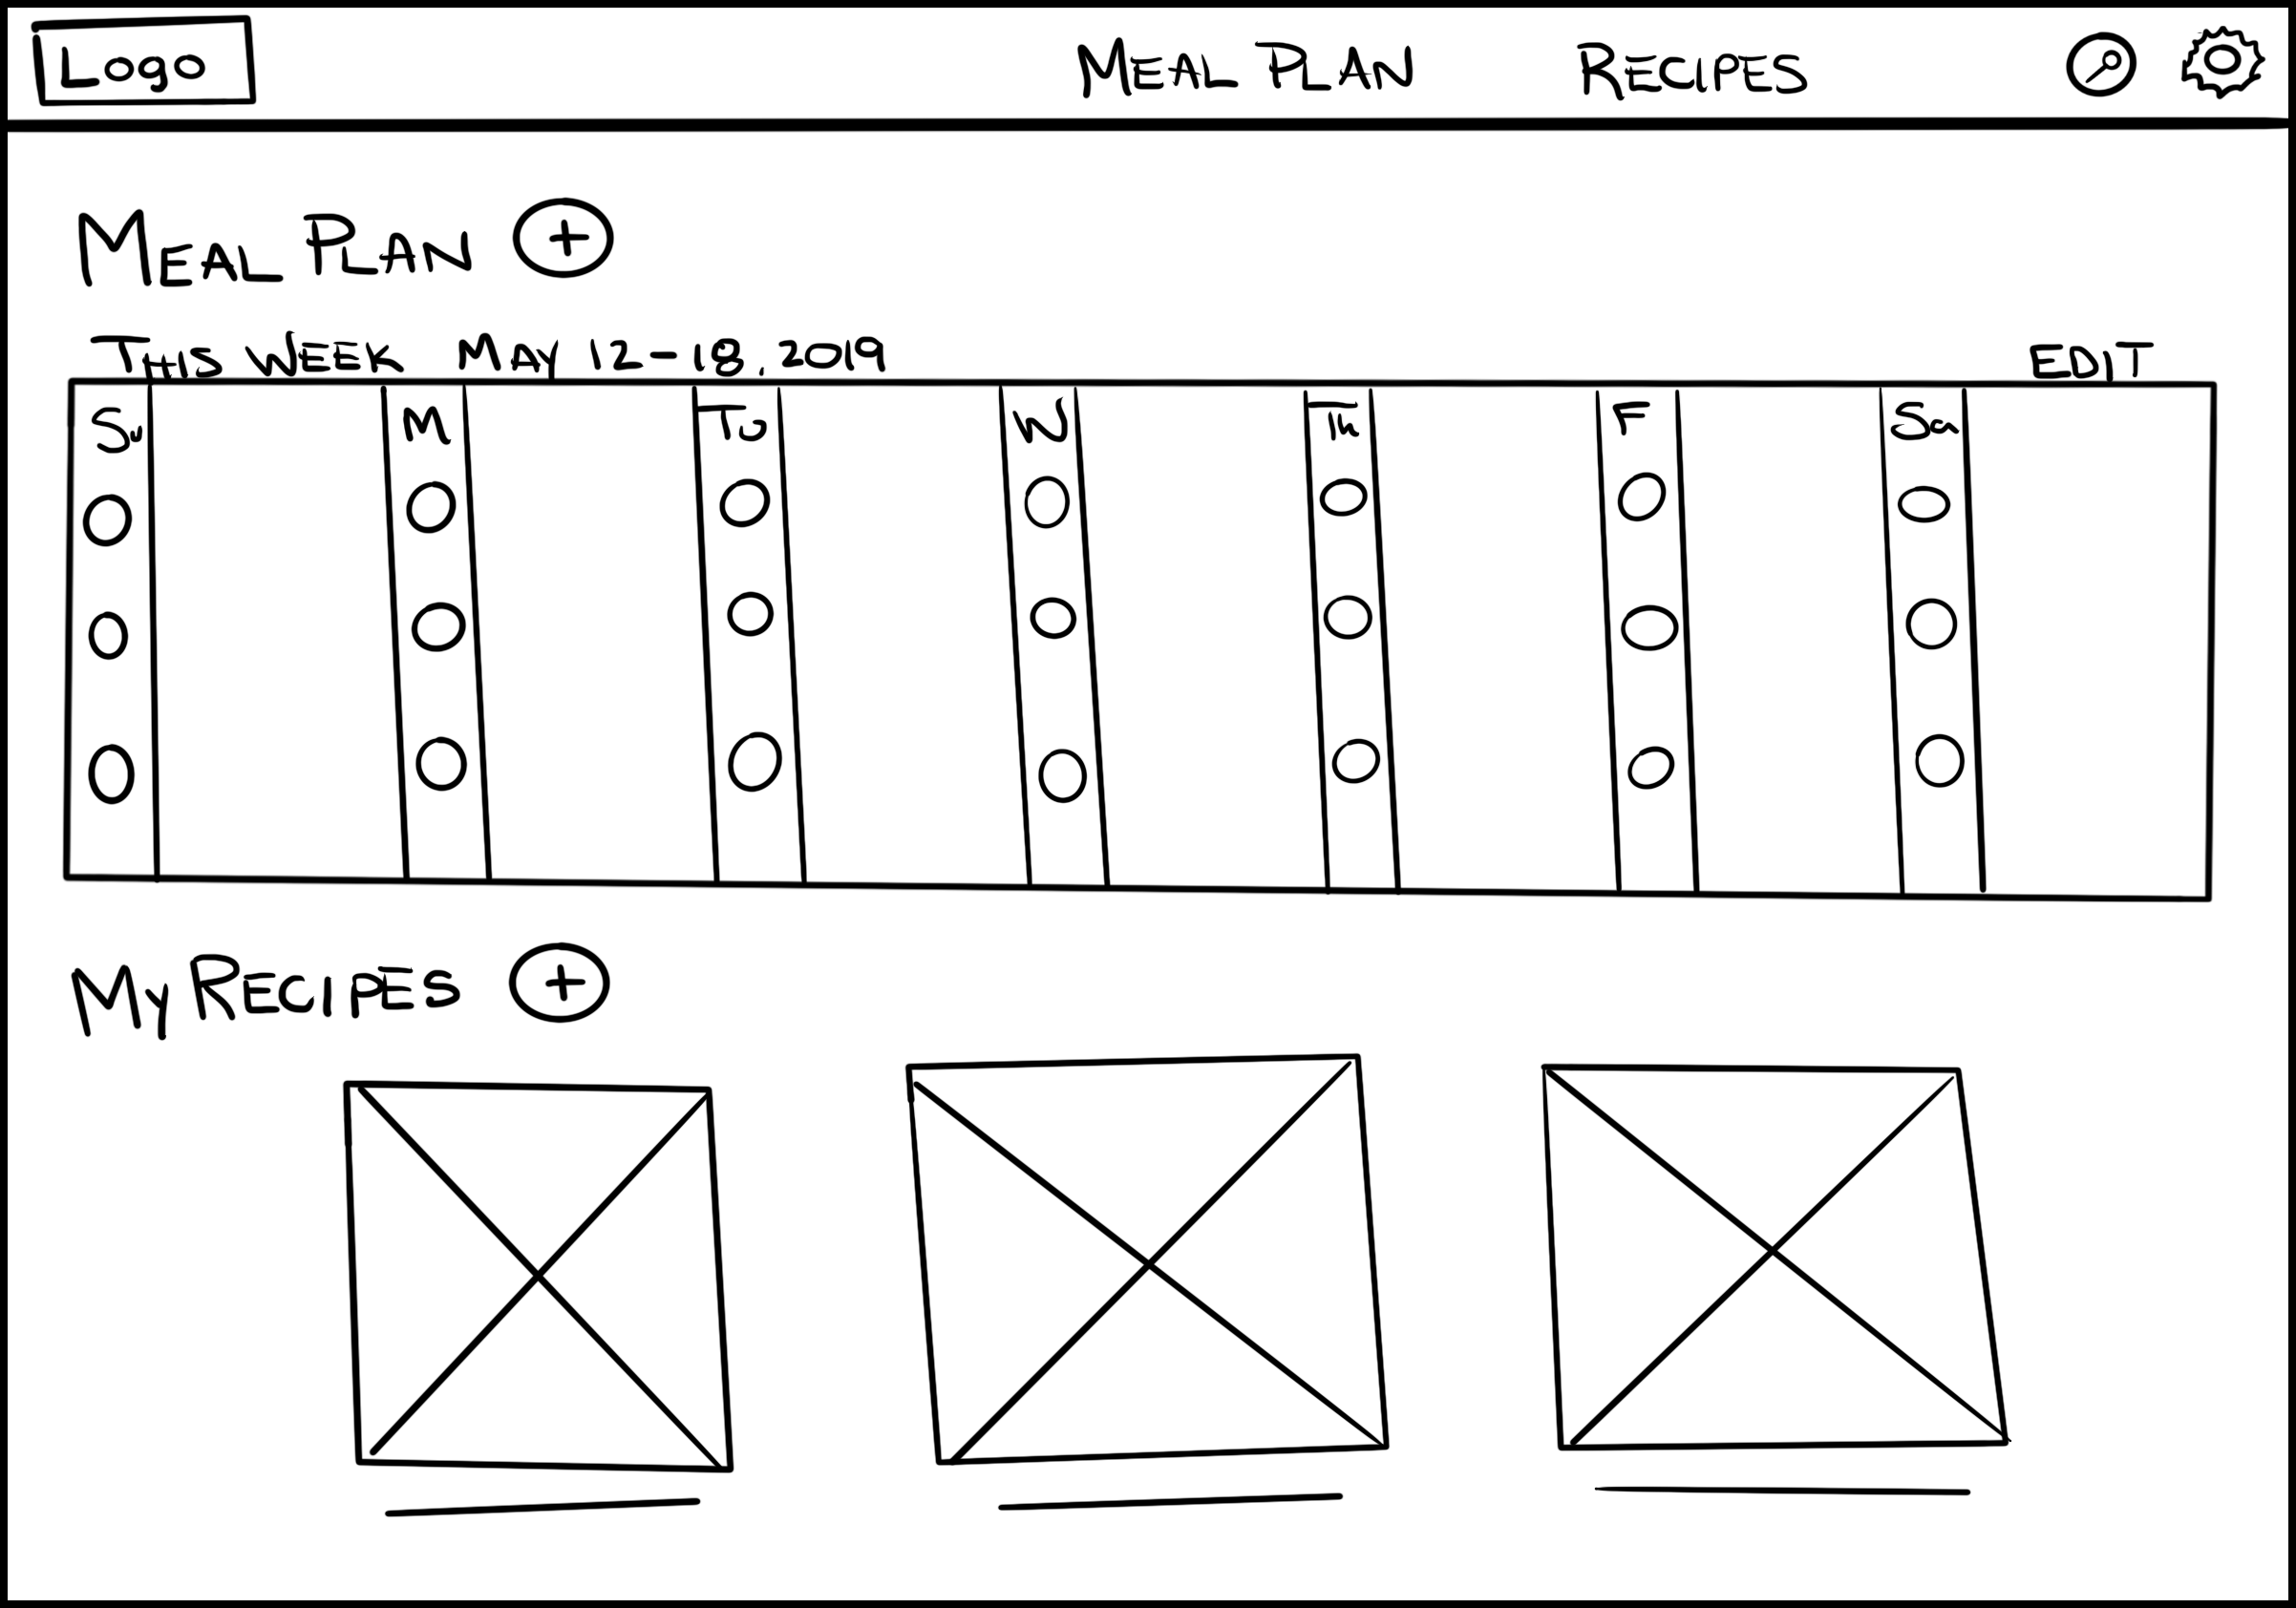 Logo MEAL PLAN RECIPES
MEAL PLAN +
THIS WEEK MAY 12-18, 2019 EDIT
Su M Tu W Th F Sa
MY RECIPES +